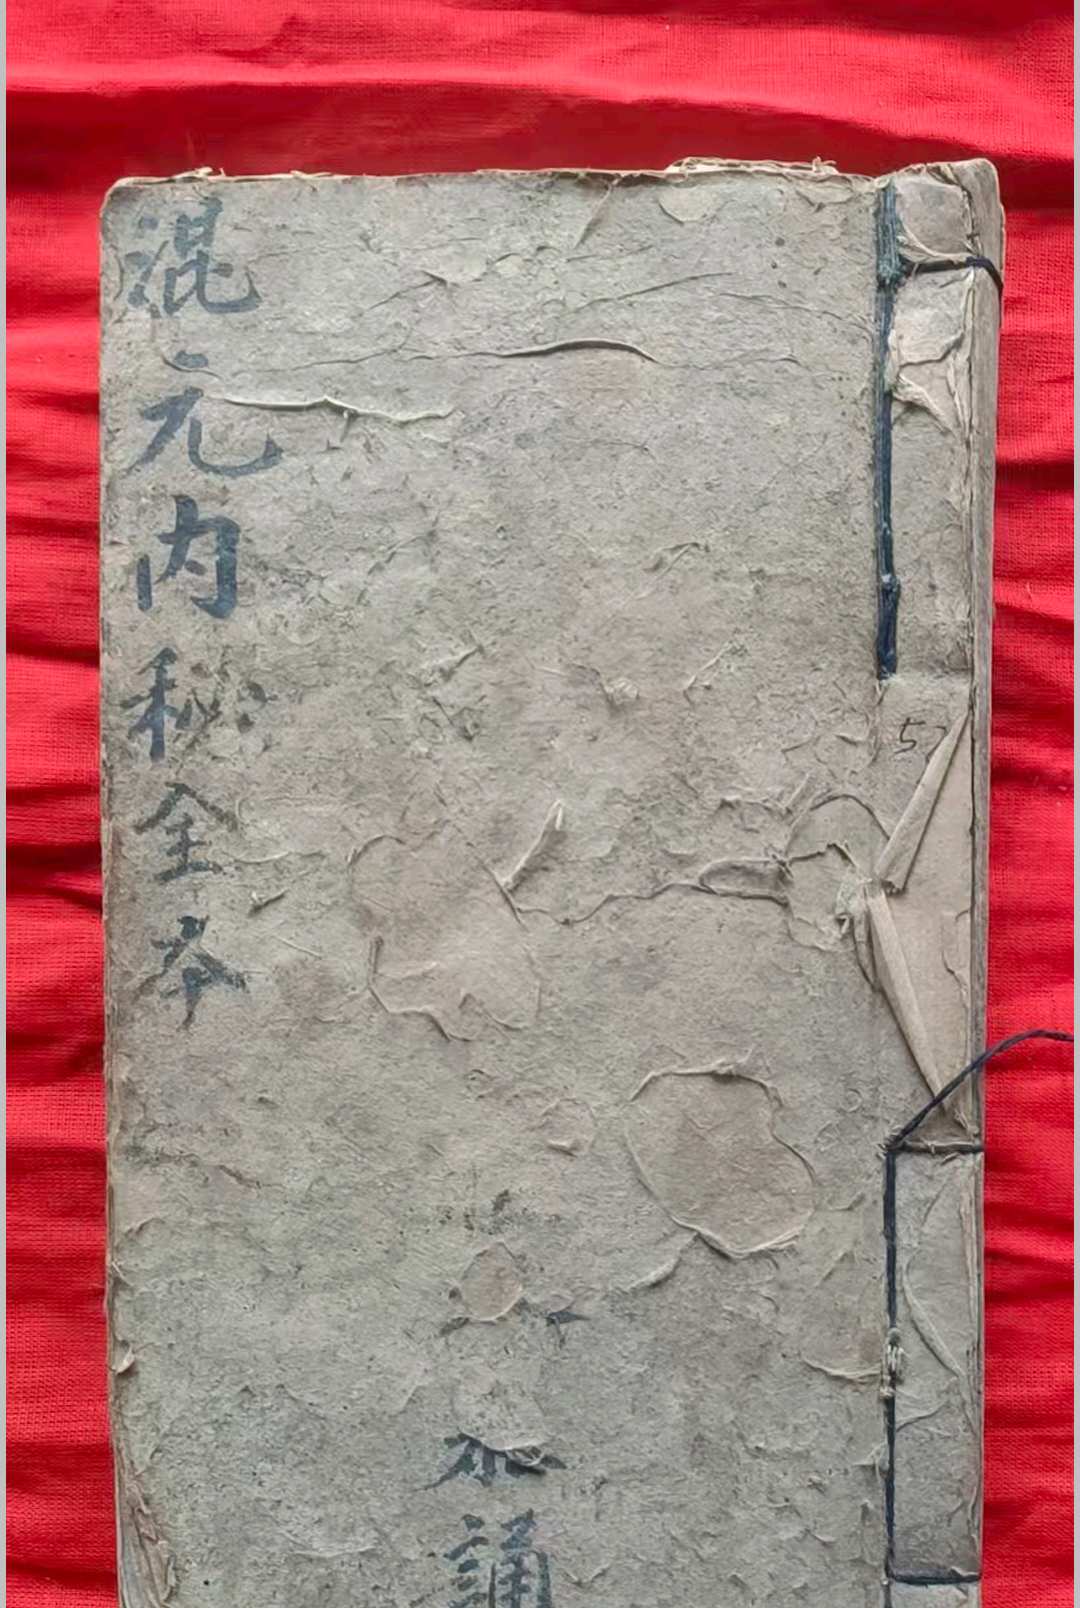 混元内秘全本
誦
57